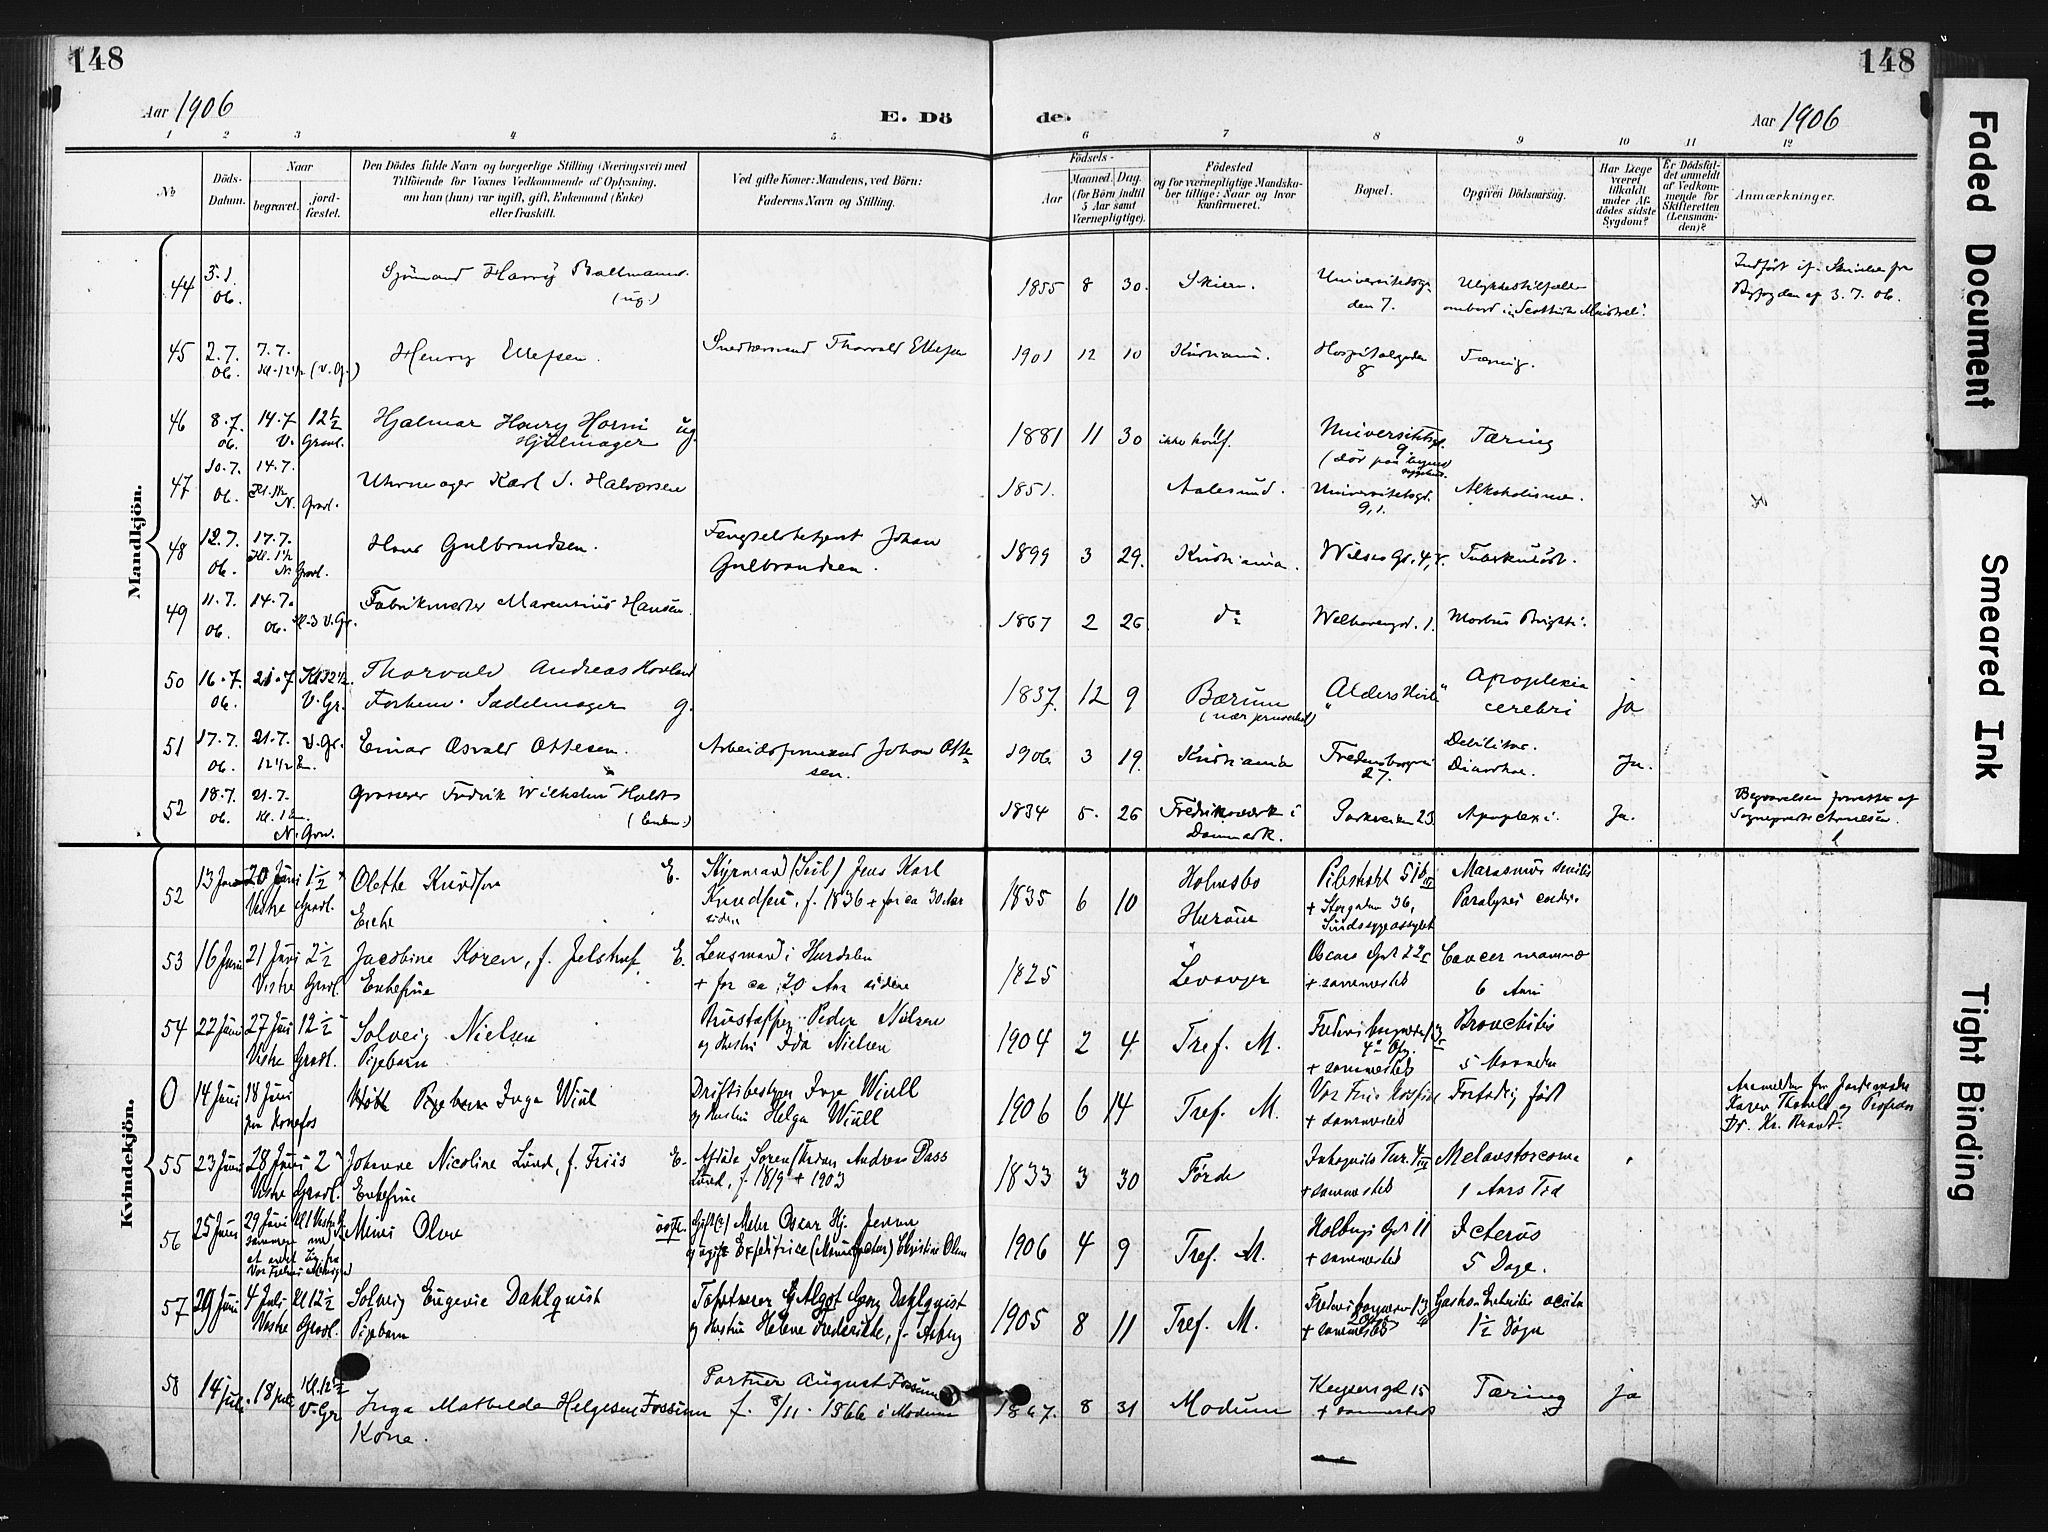 148
148
Aar 1906
E. Dö
de.
Aar 1906
1 2 3 4 5 6 7 8 9 10 11 12
No
Döds-
Datum.
Naar
begravet.
jord-
fæstet.
Den Dödes fulde Navn og borgerlige Stilling (Næringsvei) med
Tilföiende for Voxnes Vedkommende af Oplysning,
om han (hun) var ugift, gift, Enkemand (Enke)
eller fraskilt.
Ved gifte Koner: Mandens, ved Börn:
Faderens Navn og Stilling.
Födsels-
Aar
Maaned.
Dag.
(for Börn indtil
5 Aar samt
Værnepligtige).
Födested
og for værnepligtige Mandska-
ber tillige: Naar og hvor
konfirmeret.
Bopæl.
Opgiven Dödsaarsag.
Har Læge
været
tilkaldt
under Af-
dödes sidste
Sygdom?
Er Dödsfal-
det anmeldt
af Vedkom-
mende for
Skifteretten
(Lensman-
den)?
Anmærkninger.
Mandkjön.
44 5.1. 06. Sjömand Harry (ug.) 1855 8 30. Skien. Universitetsga-
den 7. Ulykkestilfælde
ombord i "Scottish Minstrel". Indført if. Skrivelse fra
Byfogden af 3.7.06.
45 2.7. 06. 7.7. Kl. 12 1/2 (V. Gr.) Henry Ellefsen. Snedkersvend Thorvald Ellefsen 1901 12 10 Kristiania. Hospitalgaden
8 Tæring.
46 8.7. 06. 14.7 12 1/2 V. Gravl. Hjalmar Henry Horni ug.
Hjulmager 1881 11 30 ikke konf. Universitetsgd.
9. Tæring
47 10.7. 06. 14.7. N. Gravl. Uhrmager Karl J. Halvorsen 1851. Aalesund. Universitetsgd.
9, 1. Alkoholisme.
48 12.7. 06. 17.7. Kl. 1 1/2 N. Gravl. Hans Gulbrandsen. Fængselsbetjent Johan
Gulbrandsen. 1899 3 29. Kristiania. Wilses Gd. 4, Tuberkuløst.
49 11.7. 06. 14.7. 06. Kl. 3 V. Gr. Fabrikmester Marensius Hansen. 1867 2 26 do Welhavensgd. 1. Morbus Brightii.
50 16.7. 06. 21.7 V. Gr. Thorvald Andreas Hovland
Forhenv. Sadelmager g. 1837. 12 9 Bærum
(nær jernværket) "Alders Hvile" Apoplexia
cerebri ja
51 17.7. 06. 21.7. 12 1/2 V. Gr. Einar Osvald Ottesen. Arbeidsformand Johan Otte-
sen. 1906. 3 19. Kristiania Fredensborgvei
27. Debilitas.
Diarrhoe. Ja.
52 18.7. 06. 21.7. N. Grav. Grosserer Fredrik Wilhelm Holdt
(Enkm.) 1834 5. 26 Frederiksværk i
Danmark. Parkveien 23 Apoplexi. Ja. Begravelsen forrettet af
Sogneprest Arnesen.
Kvindekjön.
52 13 Juni 20 Juni 1 1/2
Vestre Gravl. Olette Knudsen E.
Enke Styrmand (Seil) Jens Karl
Knudsen, f. 1836 + for ca 30 Aar
siden 1835 6 10 Holmsbo
Hurum Pilestrædet 51b III
+ Storgaden 36,
Sindssygeasylet Marasmus senilis
53 16 Juni 21 Juni 2 1/2
Vestre Gravl. Jacobine Koren, f. Jelstrup E.
Enkefrue Lensmand i Hurdalen
+ for ca. 20 Aar siden 1825 Levanger Oscars Gd 22 I
+ sammesteds Cancer mammæ
6 Aar
54 22 Juni 27 Juni 12 1/2
Vestre Gravl. Solveig Nielsen
Pigebarn Peder Nielsen
og Hustru Ida Nielsen 1904 2 4 Tref. M. + sammesteds Bronchitis
5 Maaneder
0 14 Juni 18 Juni Pigebarn Inga Wiull Driftsbestyrer Inge Wiull
og Hustru Helga Wiull 1906 6 14 Tref. M. + sammesteds Fortidlig født Anmeldt fra Jordemoder
Dr. Kr. Brandt.
55 23 Juni 28 Juni 2
Vestre Gravl. Johanne Nicoline Lund, f. Friis E.
Enkefrue Andreas Dass
Lund, f. 1819 + 1903 1833 3 30 Førde Inkognito Terr. 4 III
+ sammesteds
1 Aars Tid
56 25 Juni 29 Juni Minni Olsen Gift (?) Maler Oscar Hj. Jensen
og ugift Expeditrice Christine Olsen 1906 4 9 Tref. M. Holbergs Gd 11
+ sammesteds Icterus
5 Dage.
57 29 Juni 4 Juli Kl 12 1/2
Vestre Gravl. Solveig Eugenie Dahlquist
Pigebarn Algot Georg Dahlquist
og Hustru Helene Frederikke, f. 1905 8 11 Tref. M. + sammesteds Gastro-Enteritis acuta
1 1/2 Døgn
58 14 juli. 18 juli Kl. 12 1/2
V. Gr Inga Mathilde Helgesen Fossum
Kone. Portner August Fossum
f. 8/11. 1866 i Modum 1867. 8 31 Modum Keysersgd 15
+ sammesteds Tæring ja
Faded Document
Smeared Ink
Tight Binding